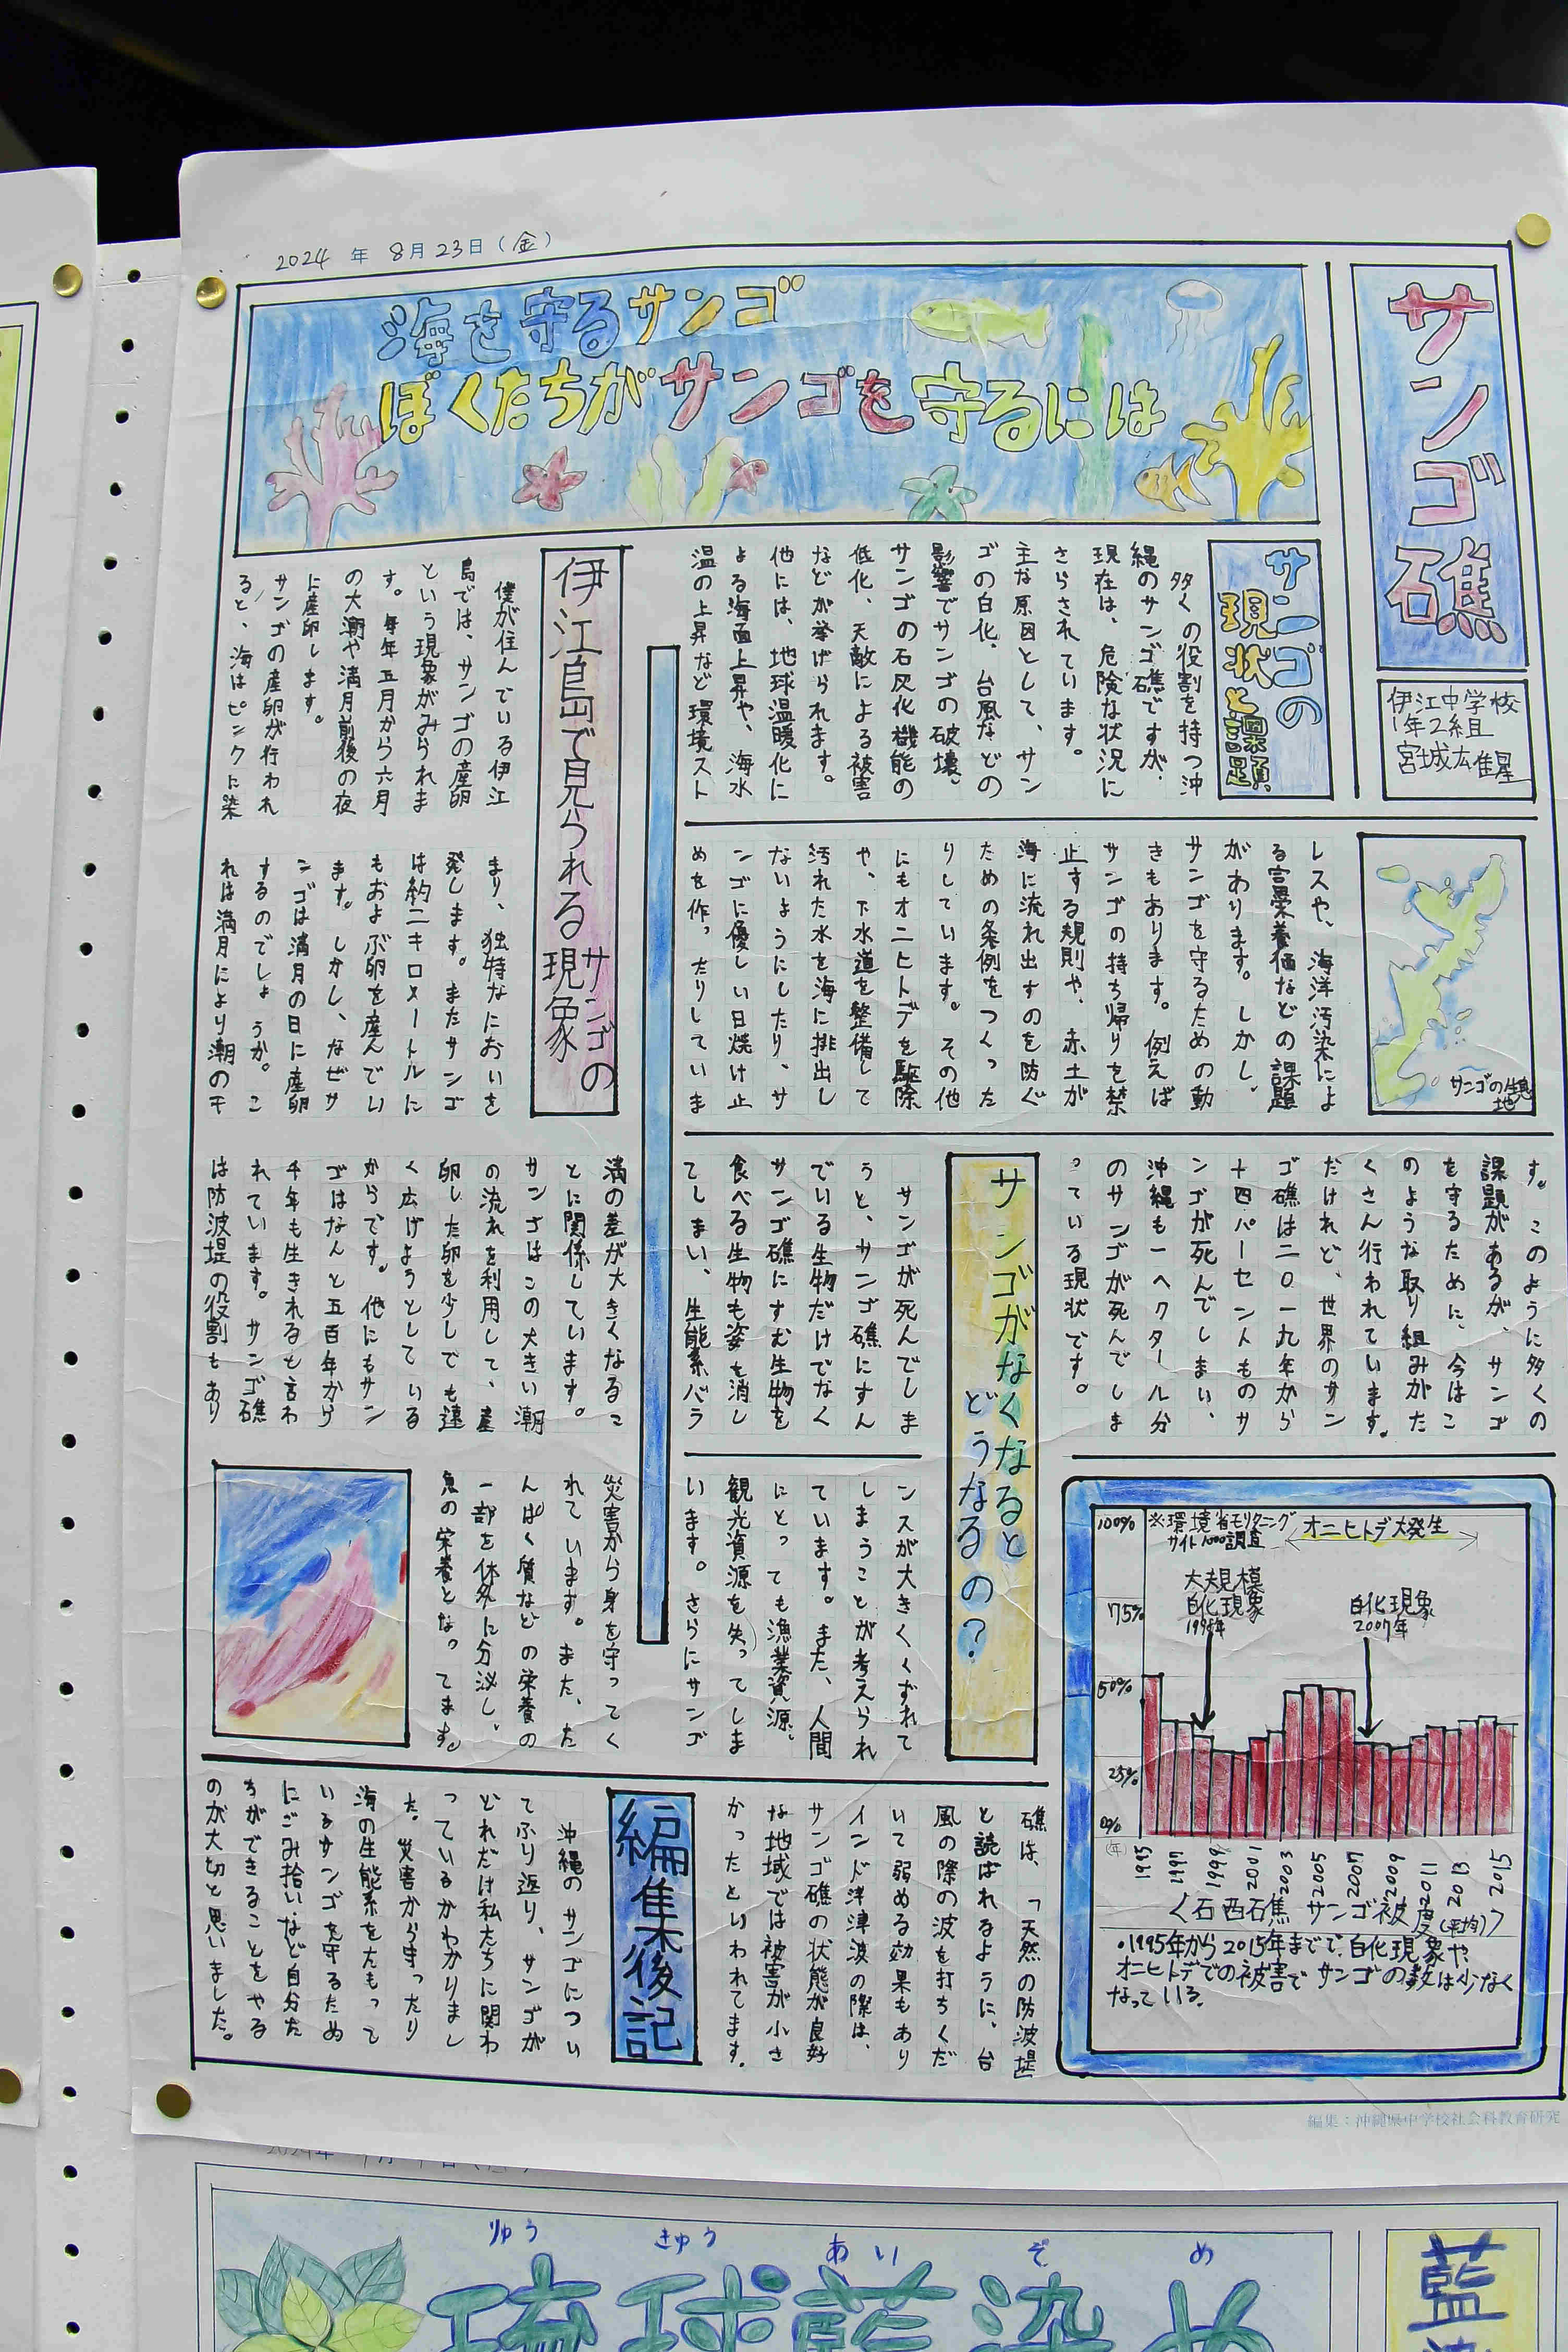 2024年 8月23日(金)
サンゴ礁
伊江中学校
1年2組
海を守るサンゴ
ぼくたちがサンゴを守るには
サンゴの
現状と課題
多くの役割を持つ沖
縄のサンゴ礁ですが、
現在は、危険な状況に
さらされています。
主な原因として、サン
ゴの白化、台風などの
影響でサンゴの破壊、
サンゴの石灰化機能の
低化、天敵による被害
などが挙げられます。
他には、地球温暖化に
よる海面上昇や、海水
温の上昇など環境スト
サンゴの生息地
レスや、海洋汚染によ
る富栄養価などの課題
がわります。しかし、
サンゴを守るための動
きもあります。例えば
サンゴの持ち帰りを禁
止する規則や、赤土が
海に流れ出すのを防ぐ
ための条例をつくった
りしています。その他
にもオニヒトデを駆除
や、下水道を整備して
汚れた水を海に排出し
ないようにしたり、サ
ンゴに優しい日焼け止
めを作ったりしていま
す。このように多くの
課題があるが、サンゴ
を守るために、今はこ
のような取り組みがた
くさん行われています。
だけれど、世界のサン
ゴ礁は二〇一九年から
十四パーセントものサ
ンゴが死んでしまい、
沖縄も一ヘクタール分
のサンゴが死んでしま
っている現状です。
サンゴがなくなると
どうなるの?
サンゴが死んでしま
うと、サンゴ礁にすん
でいる生物だけでなく
サンゴ礁にすむ生物を
食べる生物も姿を消し
てしまい、生能系バラ
ンスが大きくくずれて
しまうことが考えられ
ています。また、人間
にとっても漁業資源、
観光資源を失ってしま
います。さらにサンゴ
礁は、「天然の防波堤
と読ばれるように、台
風の際の波を打ちくだ
いて弱める効果もあり
インド洋津波の際は、
サンゴ礁の状態が良好
な地域では被害が小さ
かったといわれてます。
100%
75%
50%
25%
0%
※環境省モリタニング
サイト1000調査
オニヒトデ大発生
大規模
白化現象
1998年
白化現象
2007年
(年)
1995 1997 1999 2001 2003 2005 2007 2009 2011 2013 2015
〈石西石焦 サンゴ被度(平均)〉
・1995年から2015年までで、白化現象や、
オニヒトデでの被害でサンゴの数は少なく
なっている。
伊江島で見られるサンゴの
現象
僕が住んでいる伊江
島では、サンゴの産卵
という現象がみられま
す。毎年五月から六月
の大潮や満月前後の夜
に産卵します。
サンゴの産卵が行われ
ると、海はピンクに染
まり、独特なにおいを
発します。またサンゴ
は約二キロメートルに
もおよぶ卵を産んでい
ます。しかし、なぜサ
ンゴは満月の日に産卵
するのでしょうか。こ
れは満月により潮の干
満の差が大きくなるこ
とに関係しています。
サンゴはこの大きい潮
の流れを利用して、産
卵した卵を少しでも遠
く広げようとしている
からです。他にもサン
ゴはなんと五百年から
千年も生きれるも言わ
れています。サンゴ礁
は防波堤の役割もあり
災害から身を守ってく
れています。また、た
んぱく質などの栄養の
一部を体外に分泌し、
魚の栄養となってます。
編集後記
沖縄のサンゴについ
てふり返り、サンゴが
どれだけ私たちに関わ
っているかわかりまし
た。災害から守ったり
海の生能系をたもって
いるサンゴを守るため
にごみ拾いなど自分た
ちができることをやる
のが大切と思いました。
編集:沖縄県中学校社会科教育研究
りゅう きゅう あい ぞ め
琉球藍染め
藍